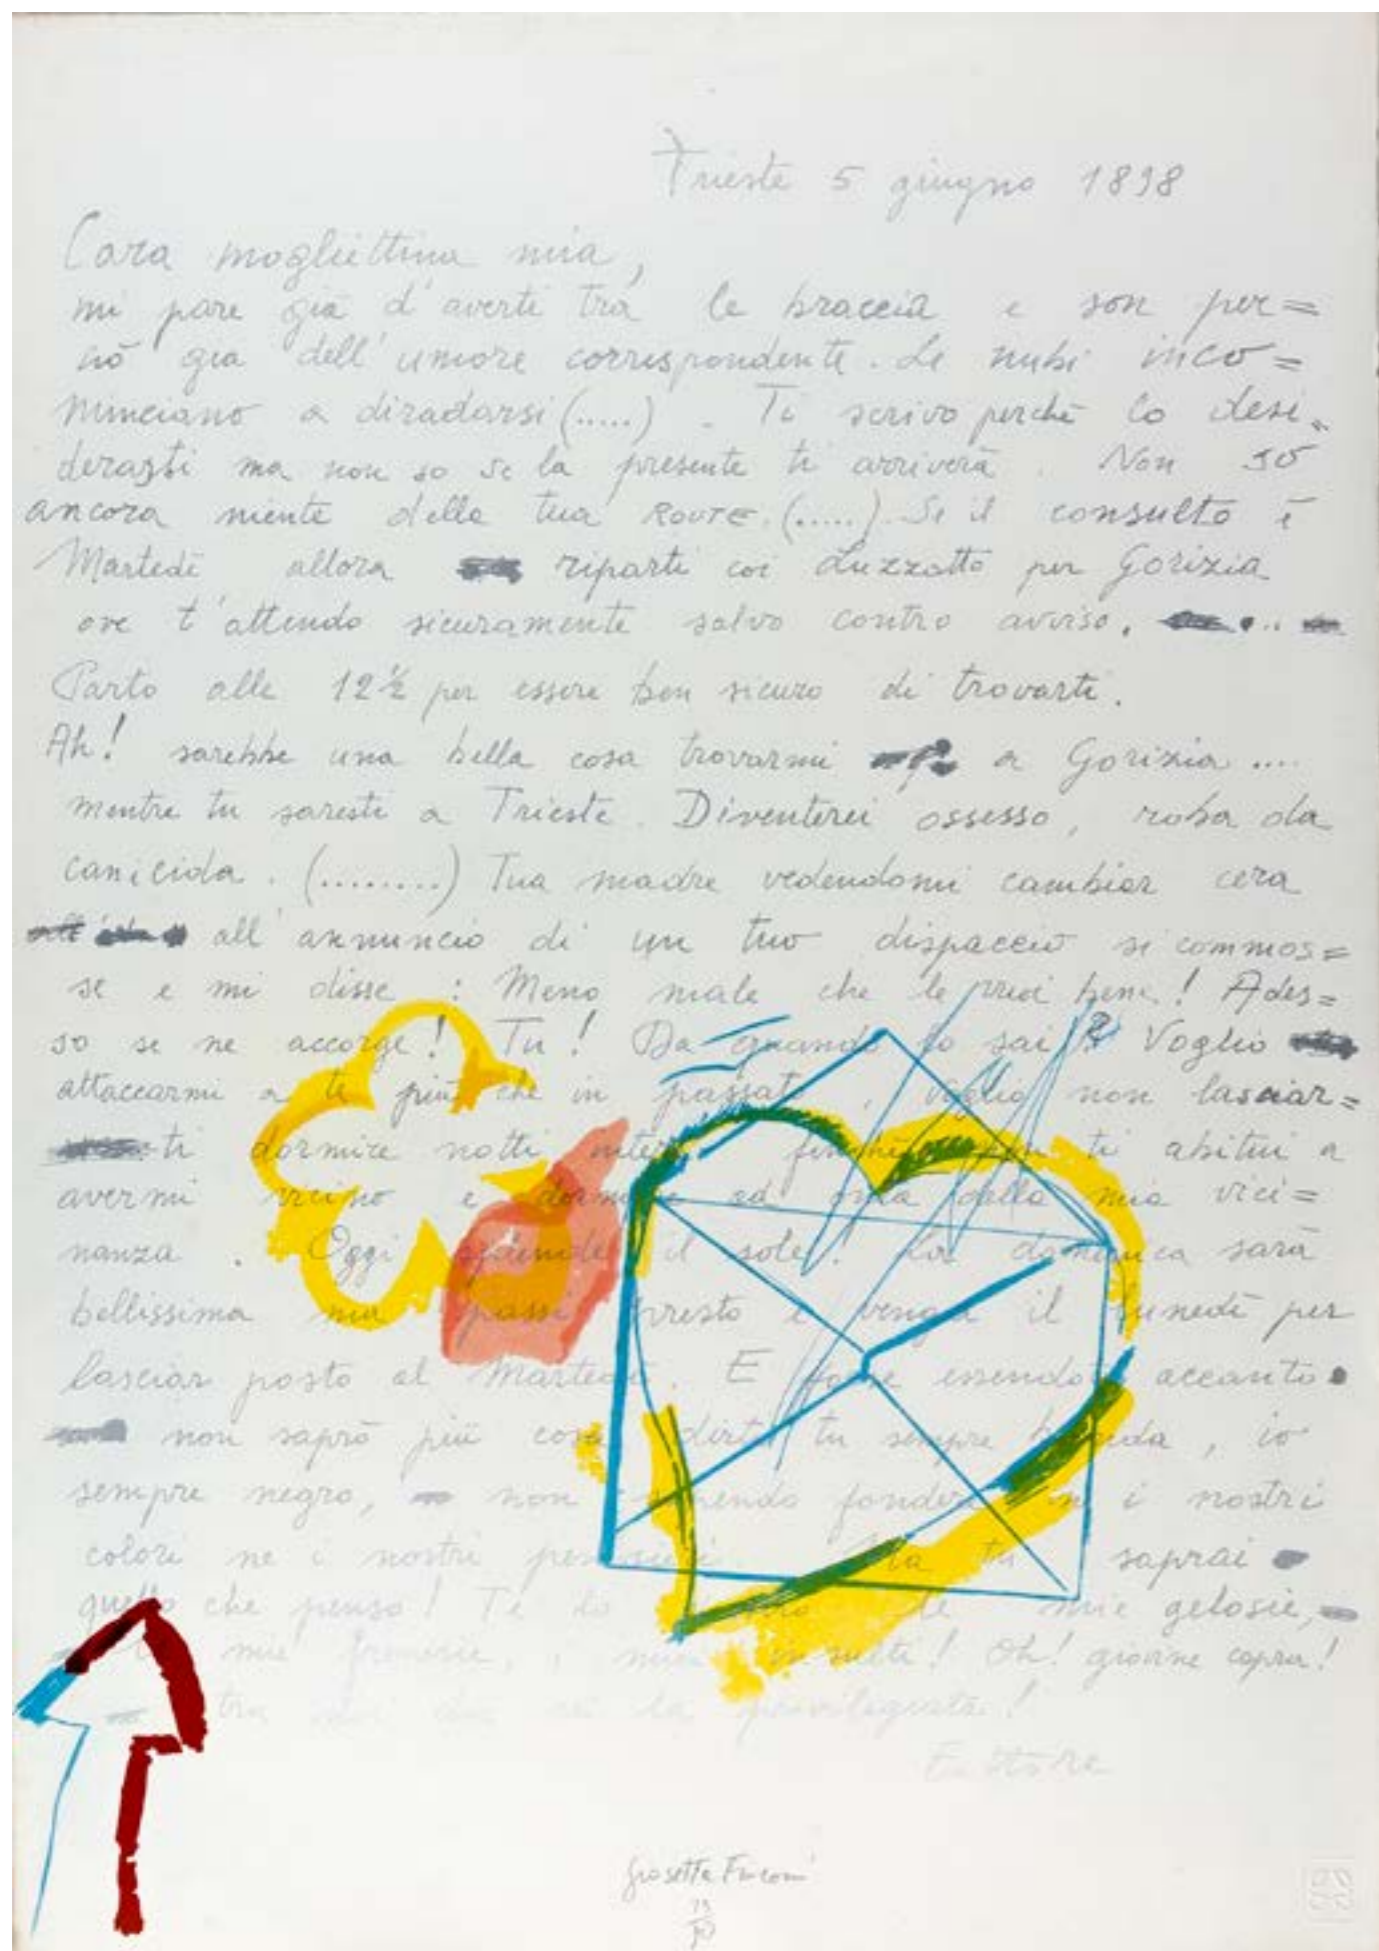 Trieste 5 giugno 1898
Cara mogliettina mia,
mi pare già d'averti tra le braccia e son per=
ciò gia dell'umore corrispondente. Le nubi inco=
minciano a diradarsi (.....). Ti scrivo perchè lo desi=
derasti ma non so se la presente ti arriverà. Non so
ancora niente della tua ROUTE. (.....). Se il consulto è
Martedì allora riparti coi Luzzatto per Gorizia
ove t'attendo sicuramente salvo contro avviso. ...
Parto alle 12½ per essere ben sicuro di trovarti.
Ah! sarebbe una bella cosa trovarmi a Gorizia ....
mentre tu saresti a Trieste. Diventerei ossesso, roba da
canicida. (........) Tua madre vedendomi cambiar cera
all'annuncio di un tuo dispaccio si commos=
se e mi disse : Meno male che le vuoi bene! Ades=
so se ne accorge! Tu! Da quando lo sai? Voglio
attaccarmi a te più che in passato, voglio non lasciar=
ti dormire notti intere finchè non ti abitui a
avermi vicino e dormire ad onta della mia vici=
nanza. Oggi splende il sole! La domenica sarà
bellissima ma passi presto e venga il lunedì per
lasciar posto al Martedì. E forse essendoti accanto
non saprò più cosa dirti tu sempre bionda, io
sempre negro, non potendo fondere nè i nostri
colori ne i nostri pensieri. Ma tu saprai
quello che penso! Te lo le mie gelosie,
mie i miei insulti! Oh! giovine capra!
tra noi due sei la privilegiata!
Ettore
Giosetta Fioroni